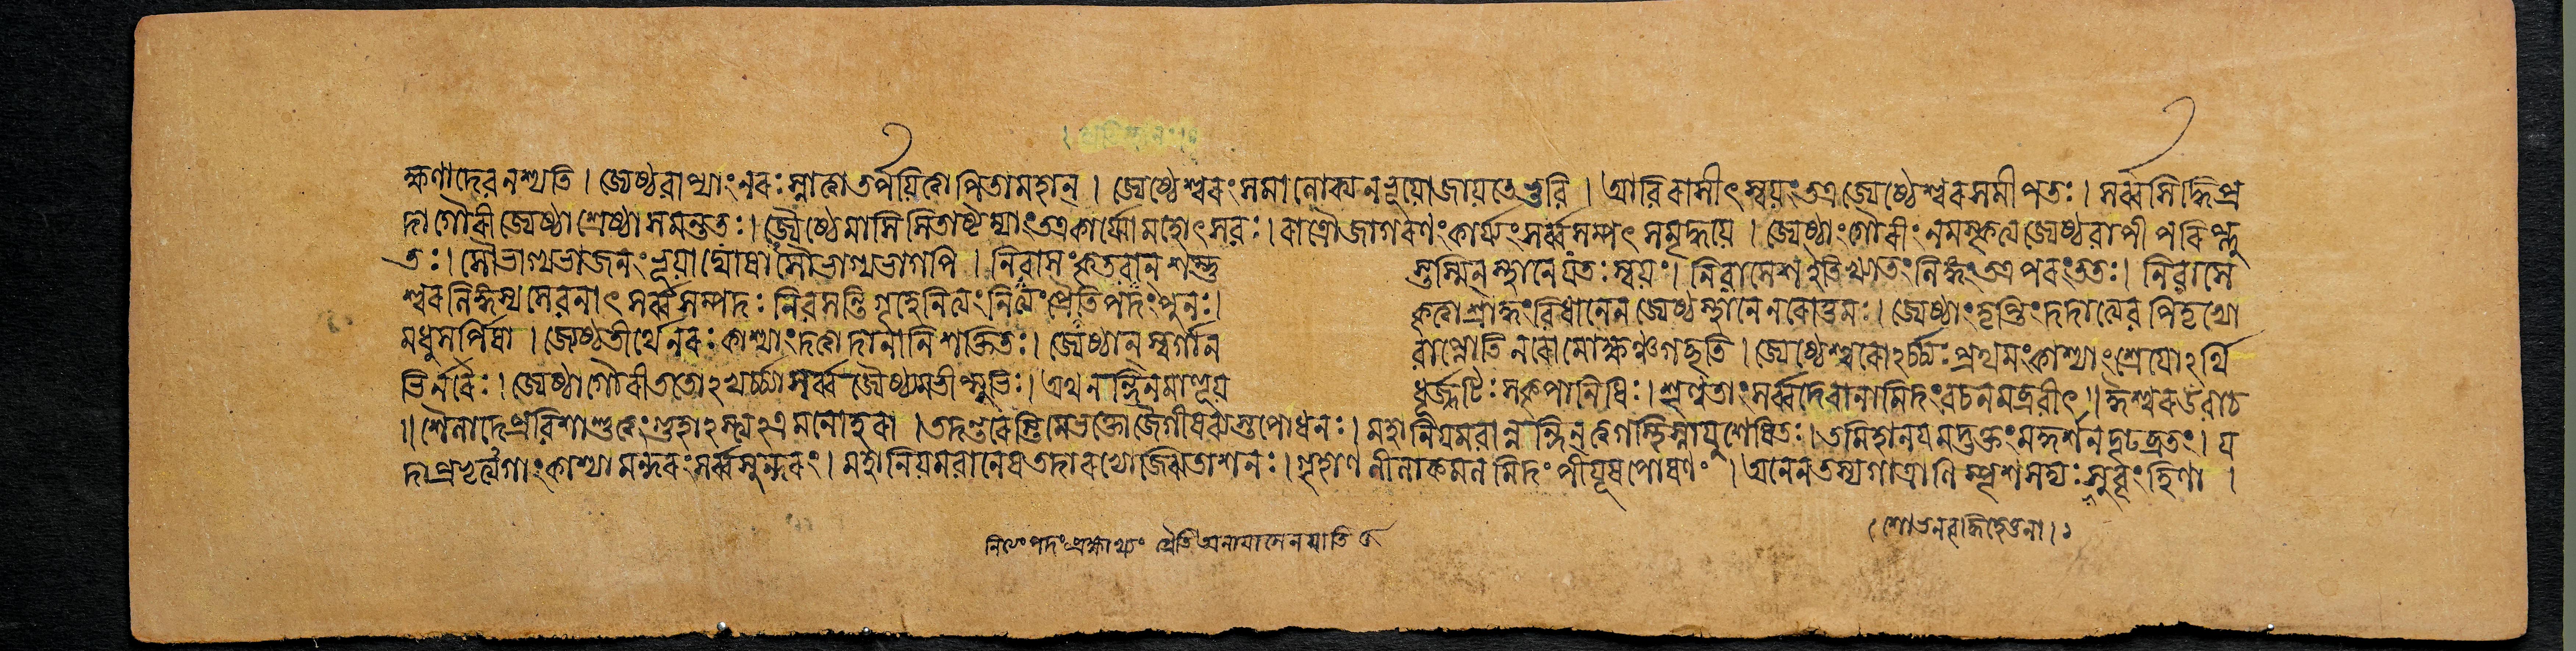 ক্ষণাদেব নশ্যতি । জ্যেষ্ঠবাপ্যাং নরঃ স্নাত্বা তর্পয়িত্বা পিতামহান্ । জ্যেষ্ঠেশ্বরং সমালোক্য ন ভূয়ো জায়তে ভুবি । আবিরাসীৎ স্বয়ং তত্র জ্যেষ্ঠেশ্বরসমীপতঃ । সর্ব্বসিদ্ধিপ্র
দা গৌরী জ্যেষ্ঠা শ্রেষ্ঠা সমন্ততঃ । জ্যৈষ্ঠে মাসি সিতাষ্টম্যাং তত্র কার্য্যো মহোৎসবঃ । রাত্রৌ জাগরণং কার্য্যং সর্ব্বসম্পৎ সমৃদ্ধয়ে । জ্যেষ্ঠাং গৌরীং নমস্কৃত্য জ্যেষ্ঠবাপী পরিপ্লু
তঃ । সৌভাগ্যভাজনং ভূয়াদ্যোষা সৌভাগ্যভাগপি । নিবাসং কৃতবান্ শম্ভু স্তস্মিন্ স্থানে যতঃ স্বয়ং । নিবাসেশ ইতি খ্যাতং লিঙ্গং তত্র পরং ততঃ । নিবাসে
শ্বরলিঙ্গস্য সেবনাৎ সর্ব্বসম্পদঃ নিবসন্তি গৃহে নিত্যং নিত্যং প্রৈতি পদং পুনঃ । কৃত্বা শ্রাদ্ধং বিধানেন জ্যেষ্ঠস্থানে নরোত্তমঃ । জ্যেষ্ঠাং তৃপ্তিং দদাত্যেব পিতৃভ্যো
মধুসর্পিষা । জ্যেষ্ঠতীর্থে নরঃ কাশ্যাং দত্বা দানানি শক্তিতঃ । জ্যেষ্ঠান্ স্বর্গান বাপ্নোতি নরো মোক্ষঞ্চ গচ্ছতি । জ্যেষ্ঠেশ্বরোঽর্চ্চ্যঃ প্রথমং কাশ্যাং শ্রেয়োঽর্থি
ভির্নরৈঃ । জ্যেষ্ঠা গৌরী ততোঽভ্যর্চ্চ্যা সর্ব্বজ্যৈষ্ঠ্যমভীপ্সুভিঃ । অথ নন্দিনমাহূয় ধূর্জ্জটিঃ স কৃপানিধিঃ । শৃণ্বতাং সর্ব্বদেবানামিদং বচনমব্রবীৎ ॥ ঈশ্বর উবাচ
॥ শৈলাদে প্রবিশাশু ত্বং গুহাঽস্ত্যঽত্র মনোহরা । তদন্তরেস্তি মে ভক্তো জৈগীষব্যস্তপোধনঃ । মহানিয়মবান্নন্দিন্ ত্বগস্থিস্নায়ুশেষিতঃ । তমিহানয় মদ্ভক্তং মদ্দর্শনদৃঢব্রতং । য
দা প্রভৃত্যগাং কাশ্যা মন্দরং সর্ব্বসুন্দরং । মহানিয়মবানেষ তদারভ্যোজ্ঝিতাশনঃ । গৃহাণ লীলাকমলমিদং পীয়ূষপোষণং । অনেন তস্য গাত্রাণি স্পৃশ সদ্যঃ সুবৃংহিণা ।